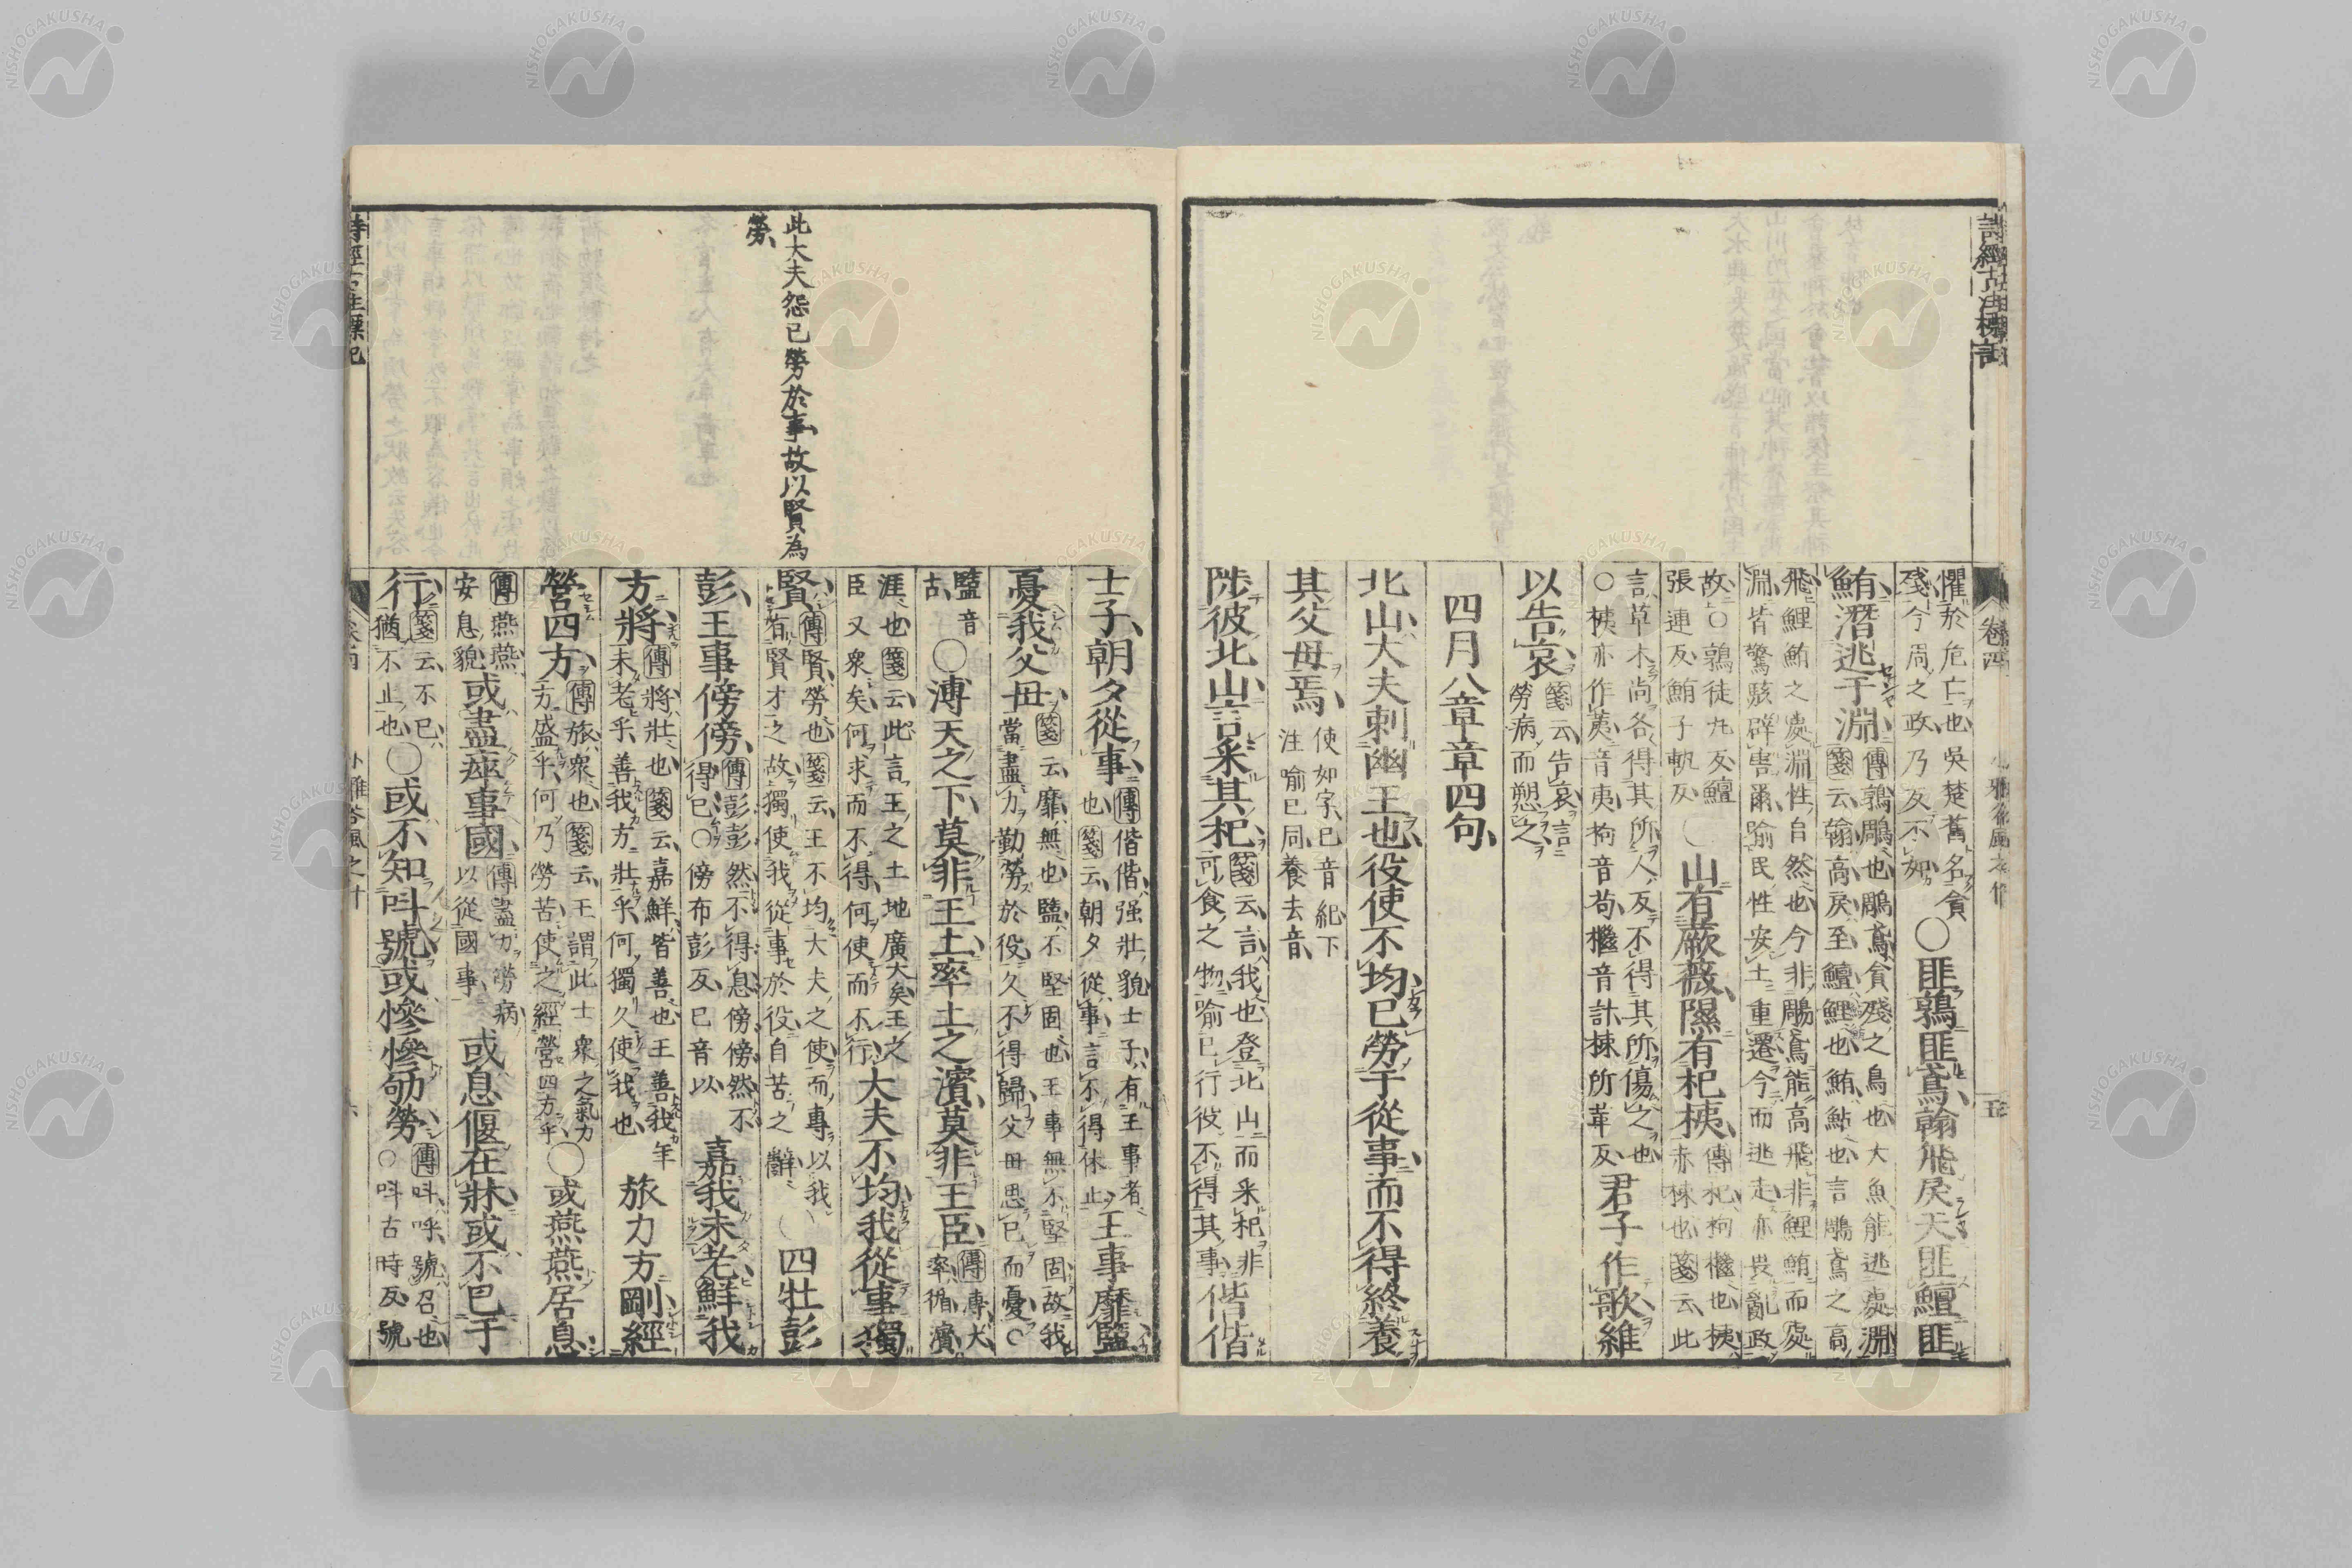 詩經古注標記
卷四
懼於危亡也吳楚舊名貪
殘今周之政乃反不如
○匪鶉匪鳶翰飛戾天匪鱣匪
鮪潛逃于淵
傳鶉鵰也鵰鳶貪殘之鳥也大魚能逃處淵
箋云翰高戾至鱣鯉也鮪鮎也言鵰鳶之高
飛鯉鮪之處淵性自然也今非鵰鳶能高飛非鯉鮪而處
淵皆驚駭辟害爾喻民性安土重遷今而逃走亦畏亂政
故○鶉徒丸反鱣
張連反鮪于軌反
○山有蕨薇隰有杞桋
傳杞枸檵也桋
赤楝也箋云此
言草木尚各得其所人反不得其所傷之也
○桋亦作荑音夷枸音苟檵音計楝所革反
君子作歌維
以告哀
箋云告哀言
勞病而愬之
四月八章章四句
北山大夫刺幽王也役使不均已勞于從事而不得終養
其父母焉
使如字已音紀下
注喻已同養去音
陟彼北山言采其杞
箋云言我也登北山而采杞非
可食之物喻已行役不得其事
偕偕
士子朝夕從事
傳偕偕强壯貌士子有王事者
也箋云朝夕從事言不得休止
王事靡盬
憂我父母
箋云靡無也盬不堅固也王事無不堅固故我
當盡力勤勞於役久不得歸父母思已而憂○
盬音
古
○溥天之下莫非王土率土之濱莫非王臣
傳溥大
率循濱
涯也箋云此言王之土地廣大矣王之
臣又衆矣何求而不得何使而不行
大夫不均我從事獨
賢
傳賢勞也箋云王不均大夫之使而專以我
有賢才之故獨使我從事於役自苦之辭
○四牡彭
彭王事傍傍
傳彭彭然不得息傍傍然不
得已○傍布彭反已音以
嘉我未老鮮我
方將
傳將壯也箋云嘉鮮皆善也王善我年
未老乎善我方壯乎何獨久使我也
旅力方剛經
營四方
傳旅衆也箋云王謂此士衆之氣力
方盛乎何乃勞苦使之經營四方乎
○或燕燕居息
傳燕燕
安息貌
或盡瘁事國
傳盡力勞病
以從國事
或息偃在牀或不已于
行
箋云不已
猶不止也
○或不知叫號或慘慘劬勞
傳叫呼號召也
○叫古時反號
此大夫怨已勞於事故以賢為
勞